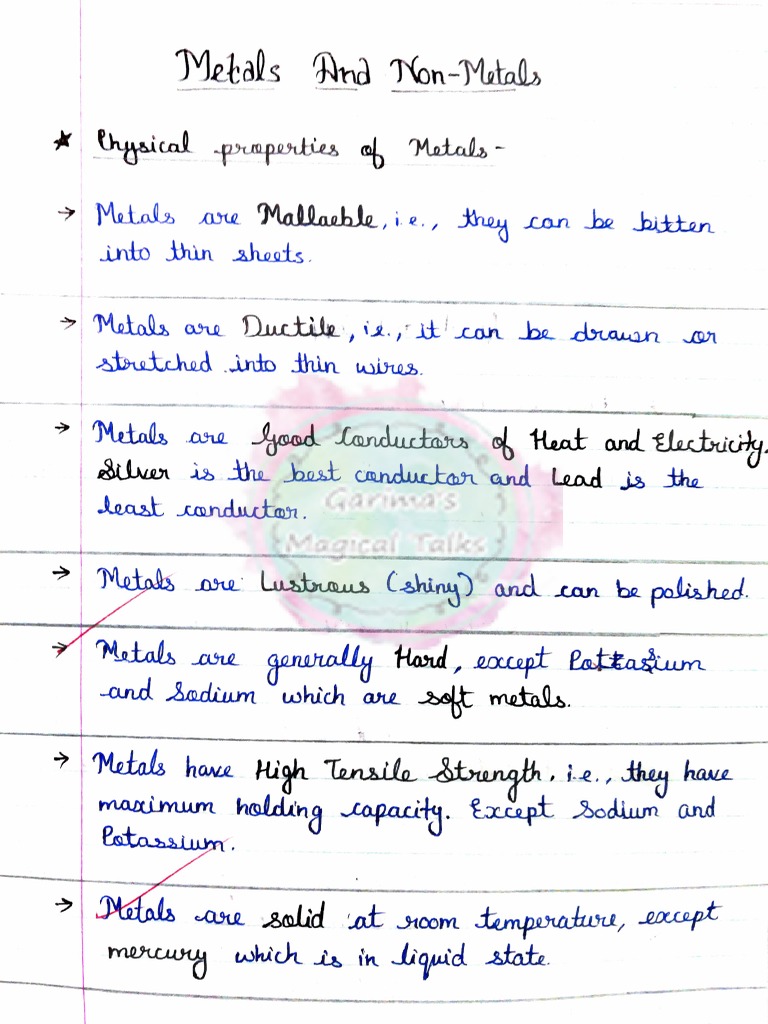 Metals And Non-Metals
★ Physical properties of Metals-
→ Metals are Mallaeble, i.e., they can be bitten
into thin sheets.
→ Metals are Ductile, i.e., it can be drawn or
stretched into thin wires.
→ Metals are Good Conductors of Heat and Electricity.
Silver is the best conductor and Lead is the
least conductor.
Garima's
Magical Talks
→ Metals are Lustrous (shiny) and can be polished.
→ Metals are generally Hard, except Pottassium
and Sodium which are soft metals.
→ Metals have High Tensile Strength, i.e., they have
maximum holding capacity. Except Sodium and
Potassium.
→ Metals are solid at room temperature, except
mercury which is in liquid state.